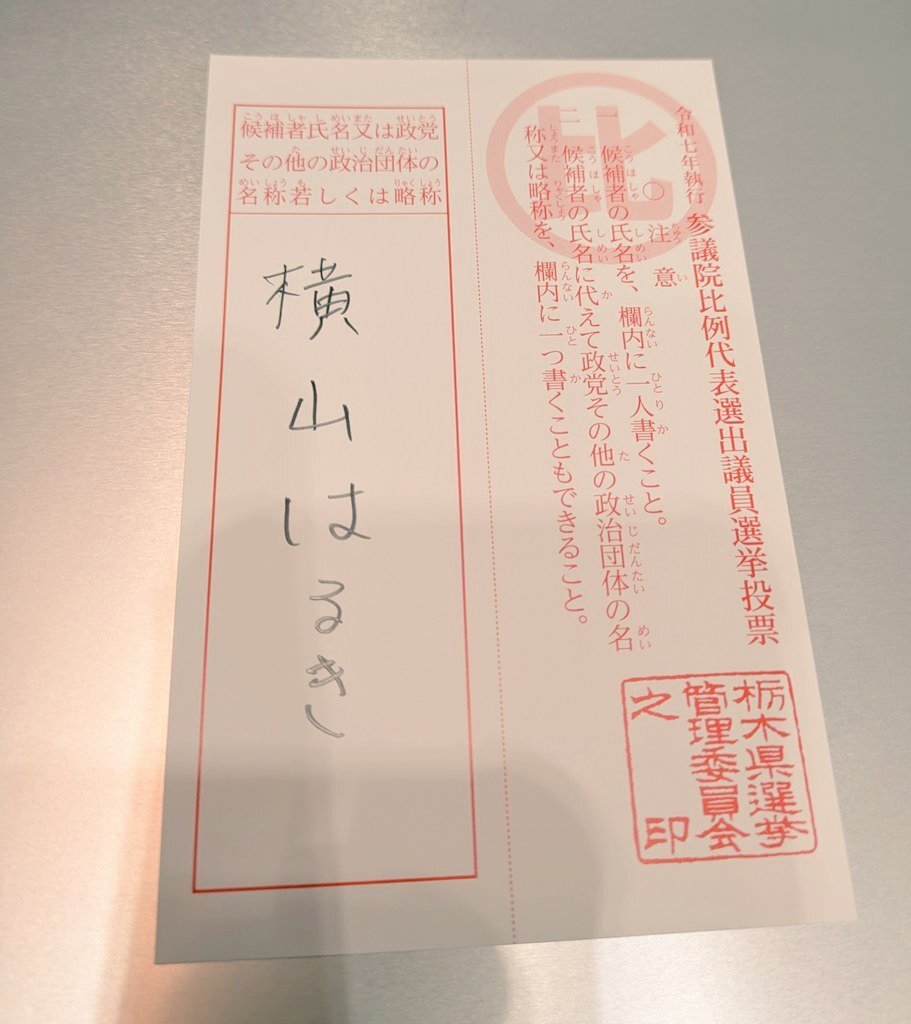 令和七年執行 参議院比例代表選出議員選挙投票
比
〇注意
一 候補者の氏名を、欄内に一人書くこと。
二 候補者の氏名に代えて政党その他の政治団体の名
称又は略称を、欄内に一つ書くこともできること。
栃木県選挙
管理委員会
之印
候補者氏名又は政党
その他の政治団体の
名称若しくは略称
横山はるき